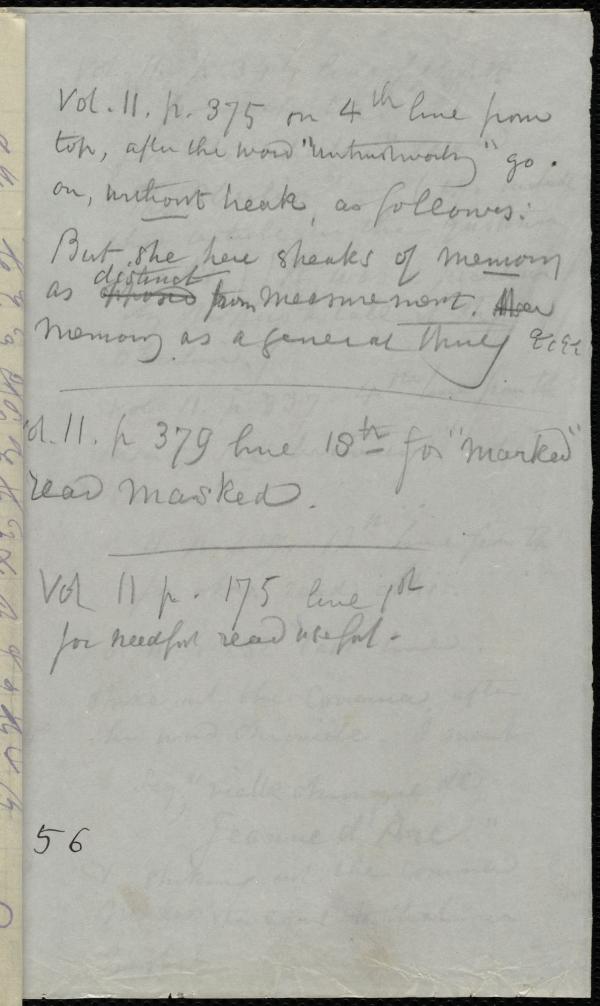 Vol. II. p. 375 on 4th line from
top, after the word "untrustworthy" go
on, without break, as follows:
But she here speaks of memory
as distinct from measurement.
memory as a general thing &c &c
Vol. II. p 379 line 18th for "marked"
read masked.
Vol II p. 175 line 1st
for needful read useful.
56